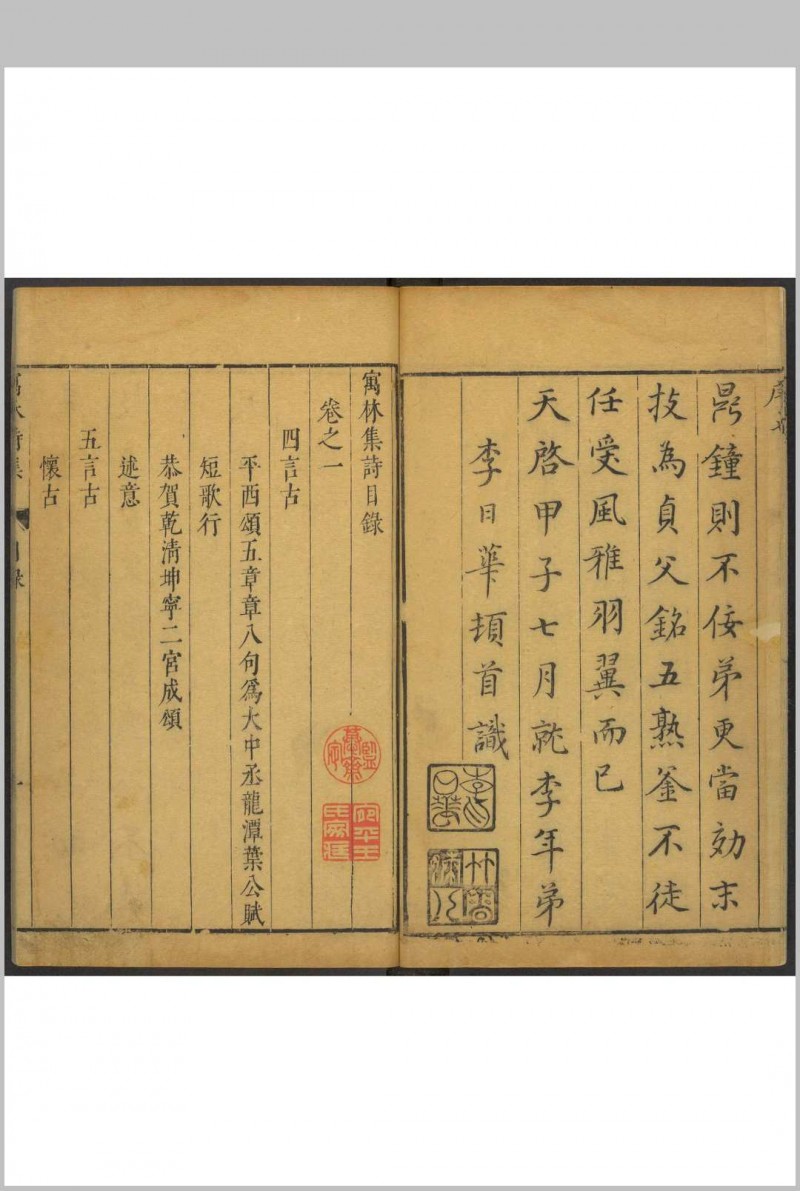 鼎鐘則不佞弟更當効末
技為貞父銘五熟釜不徒
任受風雅羽翼而已
天啓甲子七月就李年弟
李日華頓首識
寓林集詩目錄
卷之一
四言古
平西頌五章章八句爲大中丞龍潭葉公賦
短歌行
恭賀乾清坤寧二宮成頌
述意
五言古
懷古